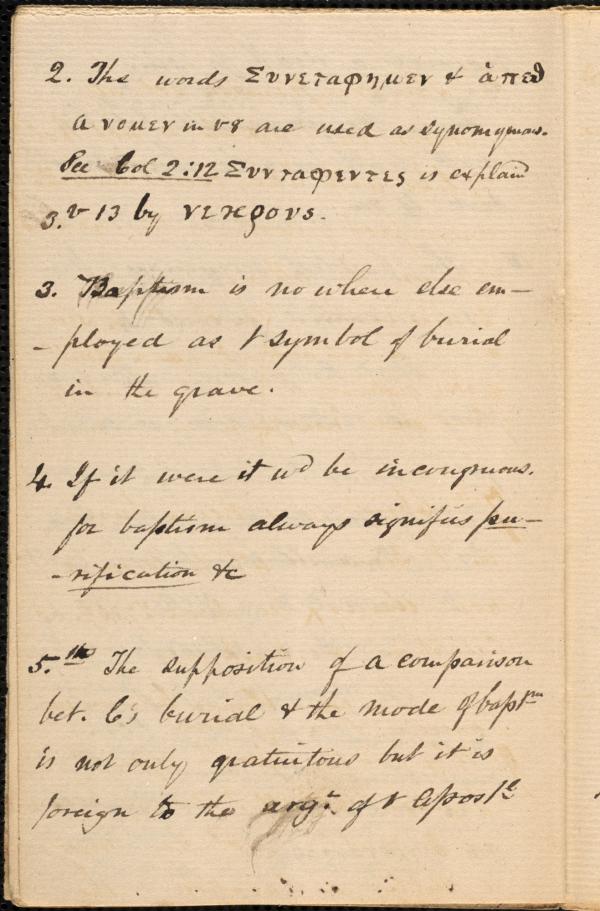 2. The words Συνεταφημεν & ἀπεθ
ανομεν in v8 are used as synonymous.
See Col 2:12 Συνταφεντες is explaind
3. v 13 by νεκρους.
3. Baptism is no where else em-
-ployed as t symbol of burial
in the grave.
4. If it were it wd be incongruous.
for baptism always signifies pu-
-rification &c
5.th The supposition of a comparison
bet. C's burial & the mode of baptm
is not only gratuitous but it is
foreign to the argt. of t Apostle